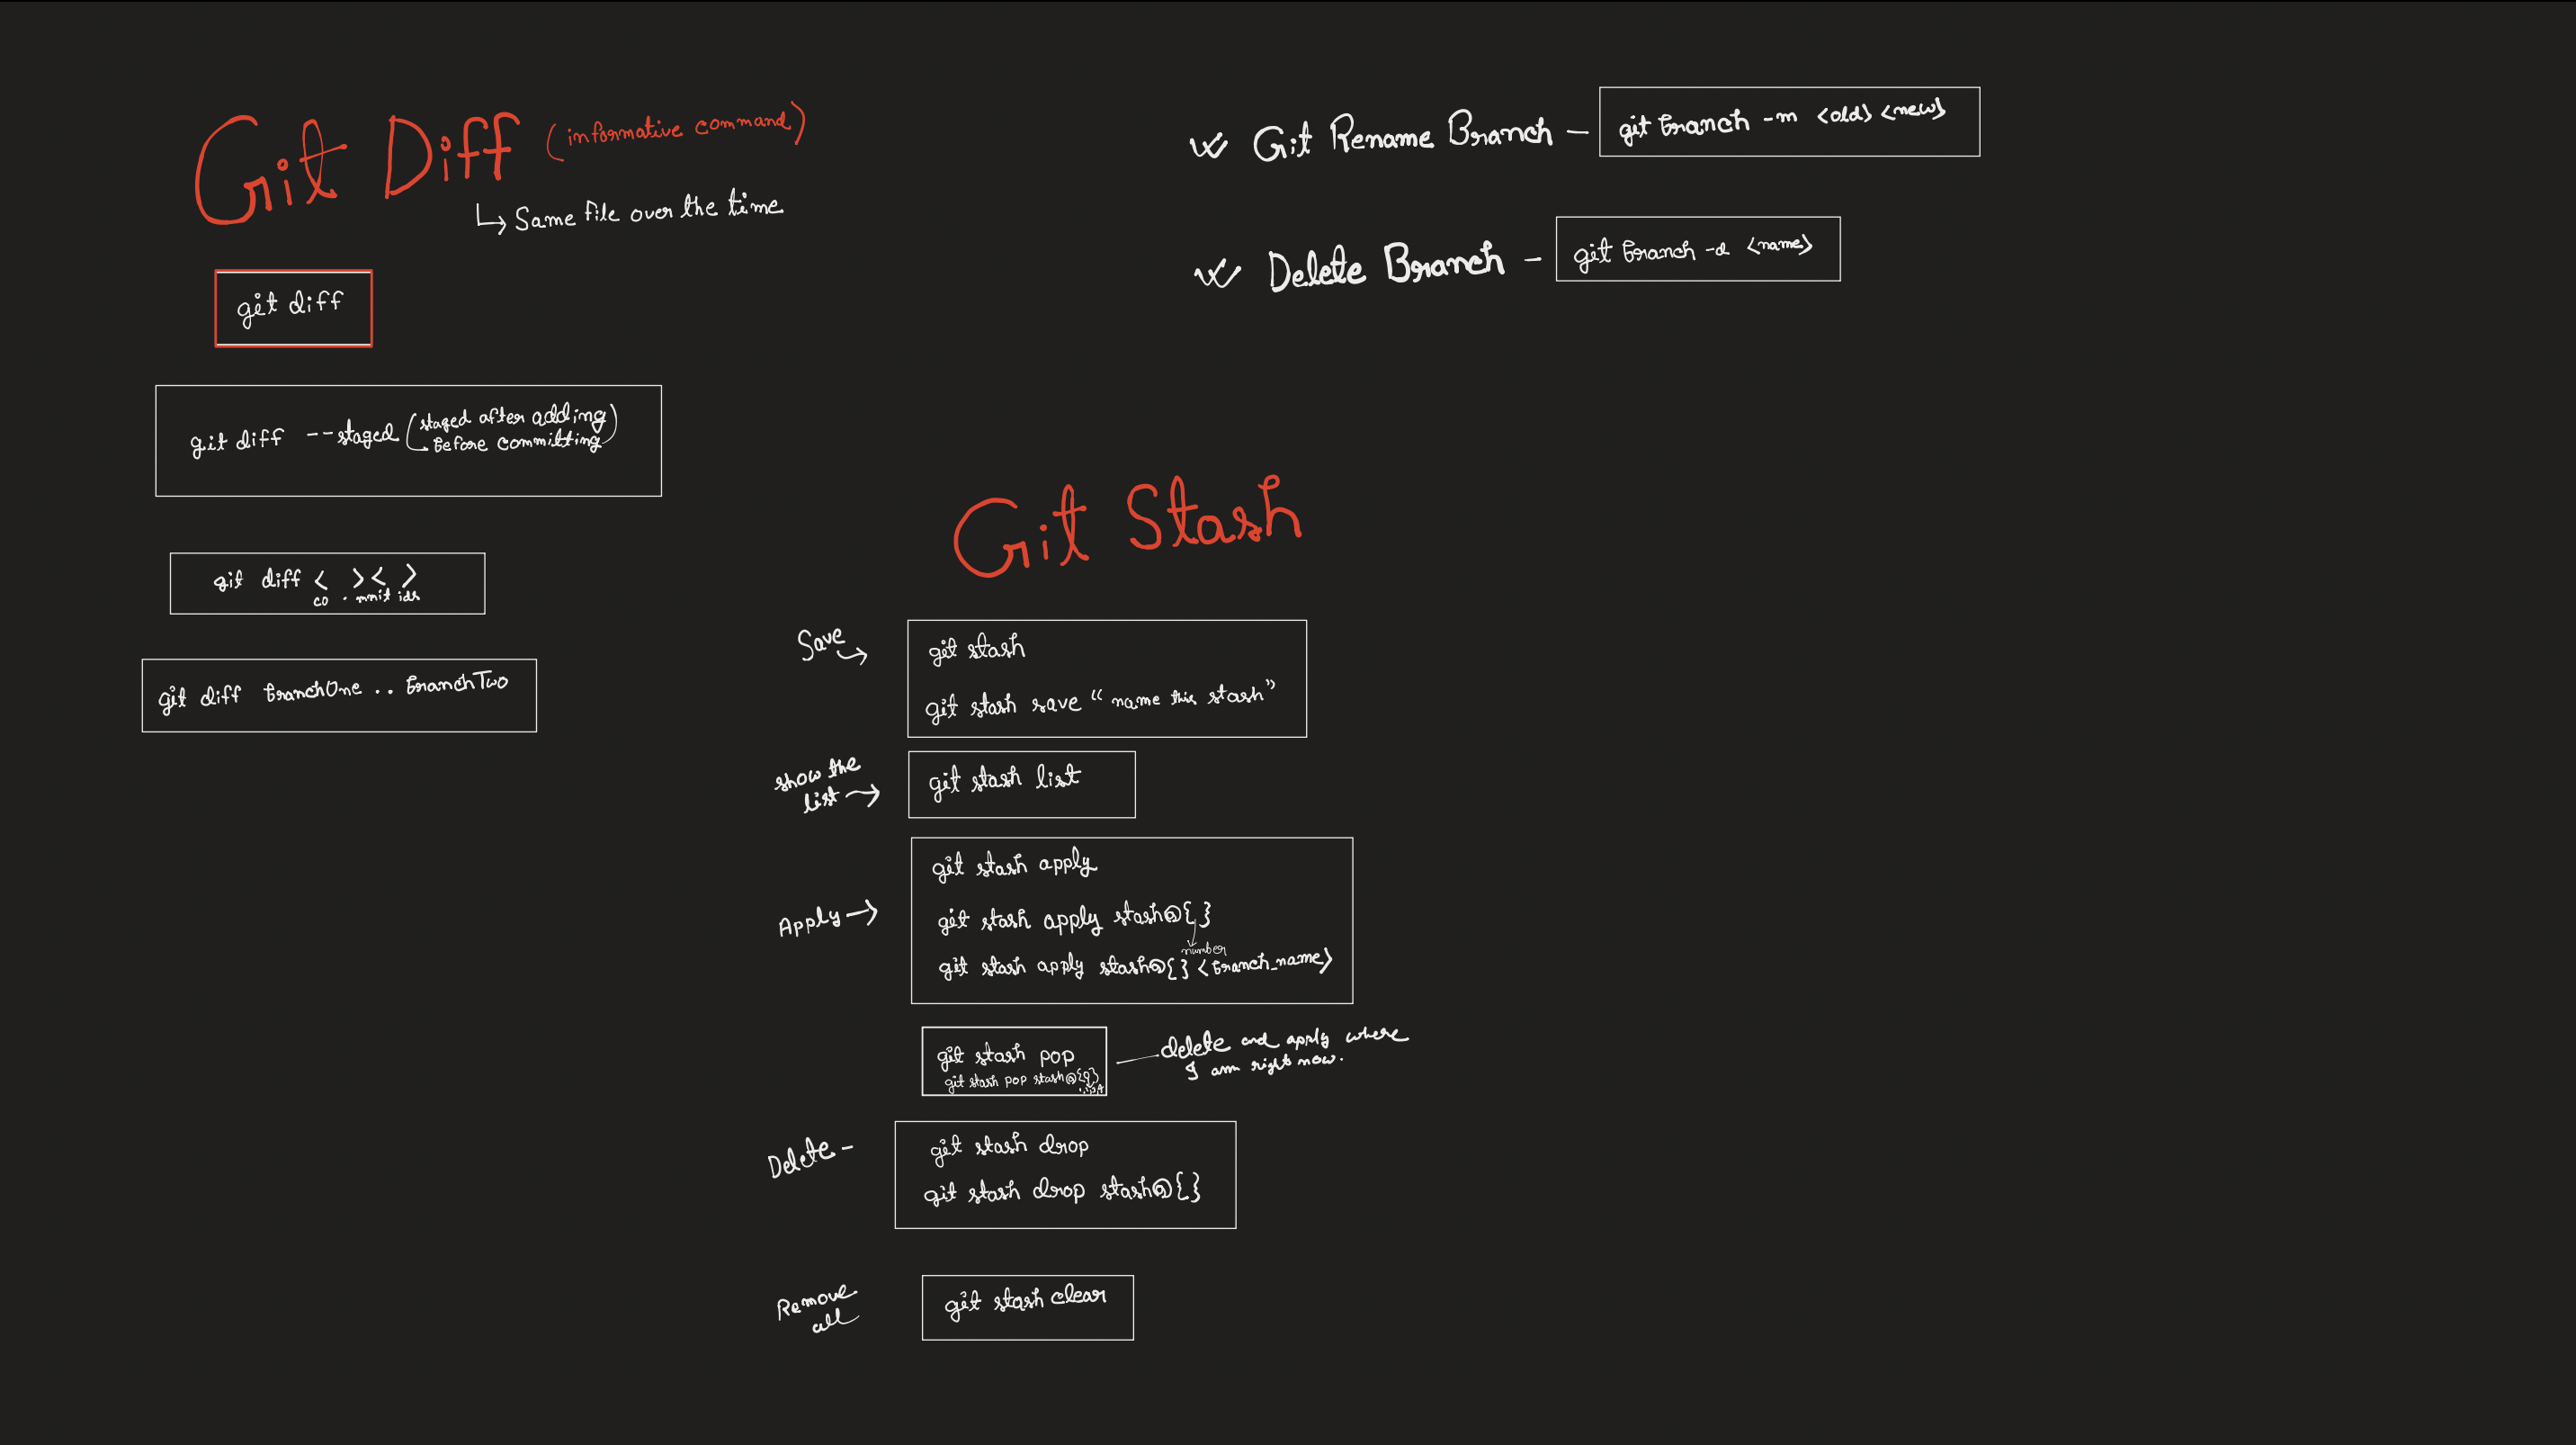 Git Diff (informative command)
↳ Same file over the time
git diff
git diff --staged (staged after adding
before committing)
git diff < > < >
commit ids
git diff branchOne .. branchTwo
Git Rename Branch – git branch -m <old> <new>
Delete Branch – git branch -d <name>
Git Stash
Save → git stash
git stash save "name this stash"
show the
list → git stash list
Apply → git stash apply
git stash apply stash@{ }
number
git stash apply stash@{ } <branch_name>
git stash pop — delete and apply where
I am right now.
git stash pop stash@{ }
Delete - git stash drop
git stash drop stash@{ }
Remove
all
git stash clear